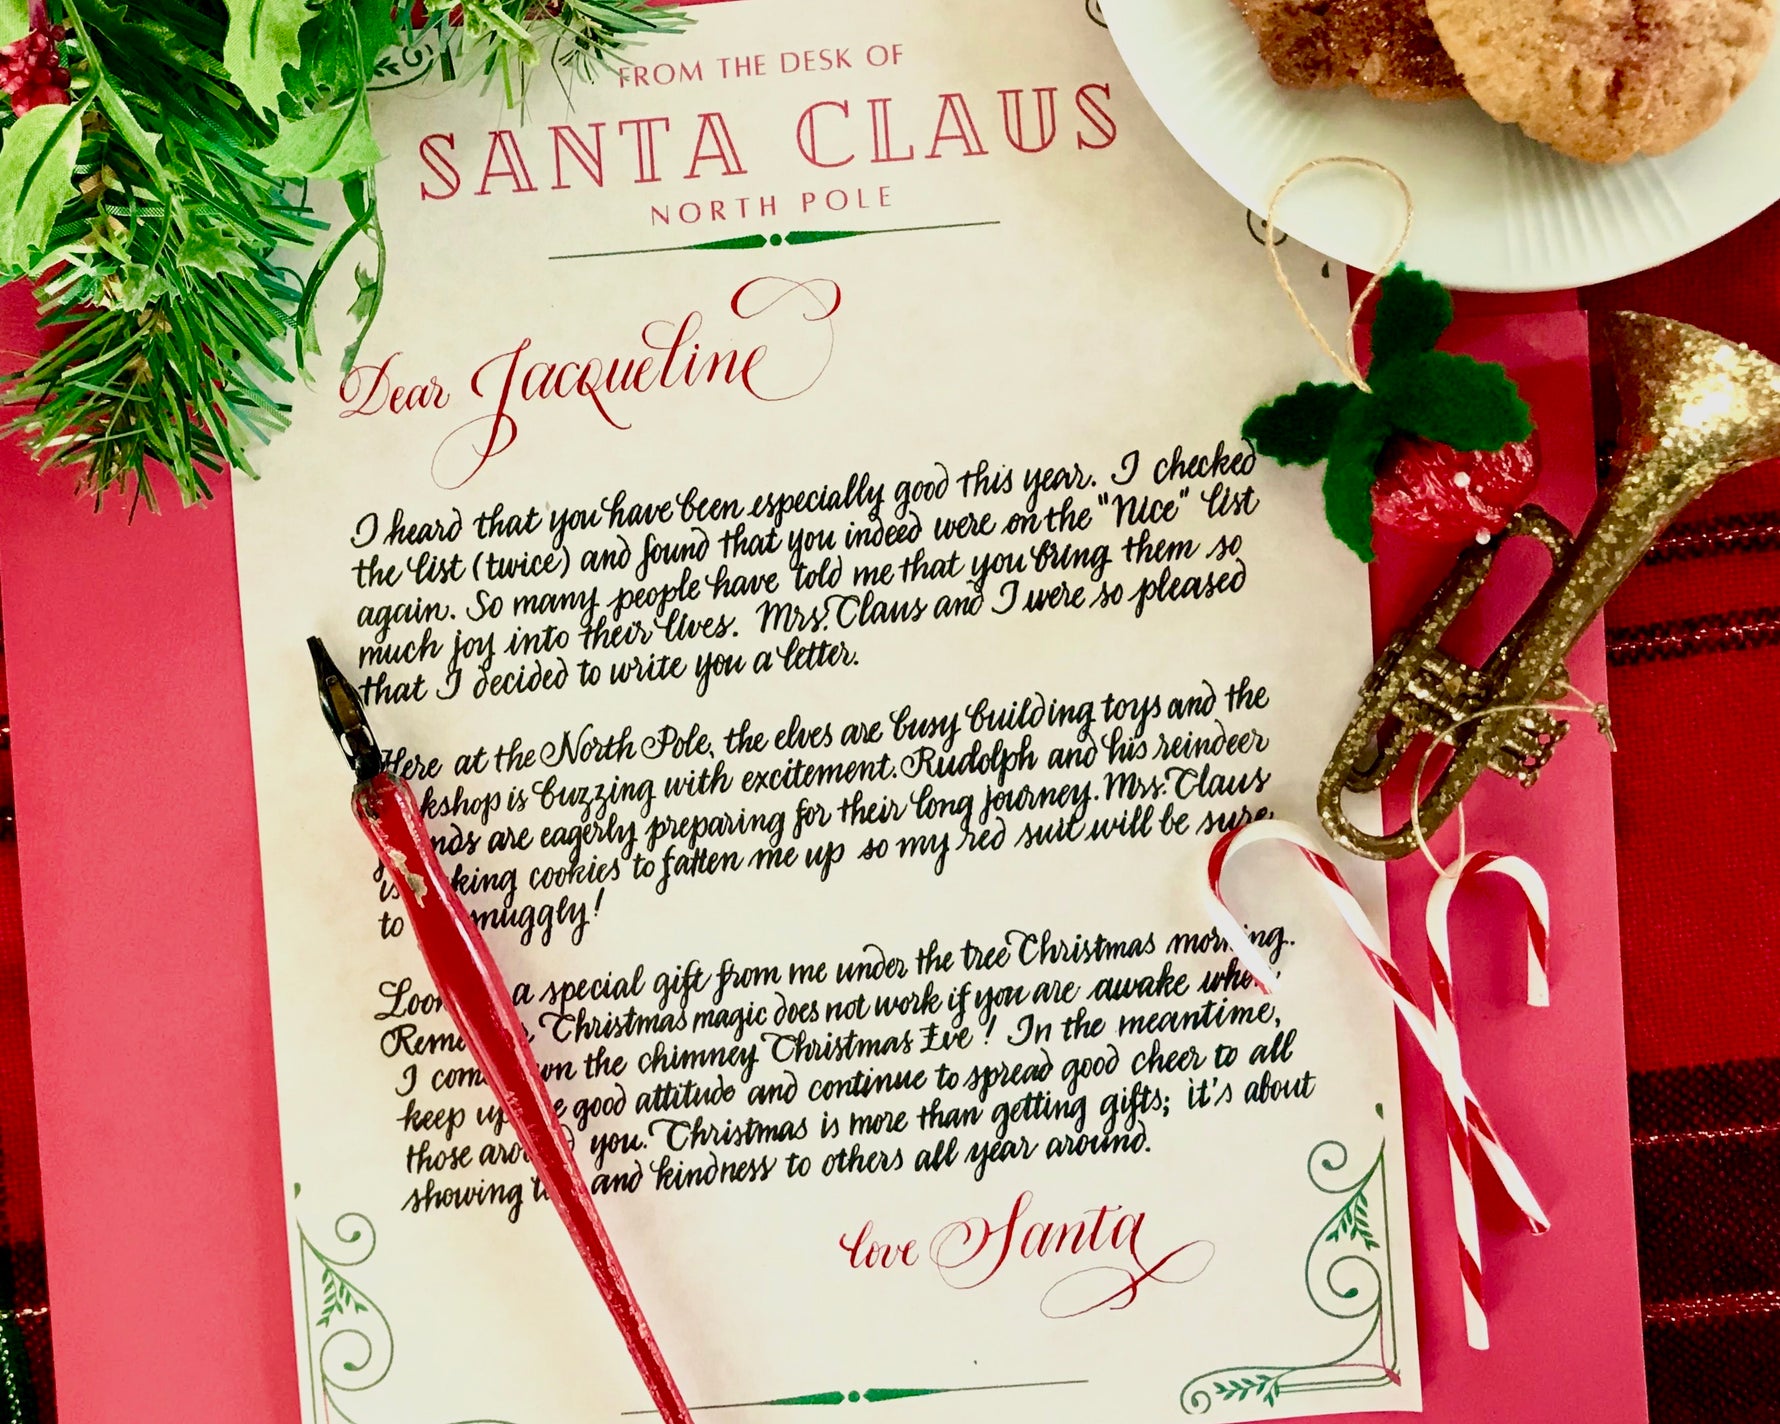 FROM THE DESK OF
SANTA CLAUS
NORTH POLE
Dear Jacqueline
I heard that you have been especially good this year. I checked
the list (twice) and found that you indeed were on the "Nice" list
again. So many people have told me that you bring them so
much joy into their lives. Mrs. Claus and I were so pleased
that I decided to write you a letter.
Here at the North Pole, the elves are busy building toys and the
is buzzing with excitement. Rudolph and his reindeer
are eagerly preparing for their long journey. Mrs. Claus
cookies to fatten me up so my red suit will be sure
to snuggly!
a special gift from me under the tree Christmas morning.
Christmas magic does not work if you are awake when
I the chimney Christmas Eve! In the meantime,
keep good attitude and continue to spread good cheer to all
those you. Christmas is more than getting gifts; it's about
showing and kindness to others all year around.
love Santa